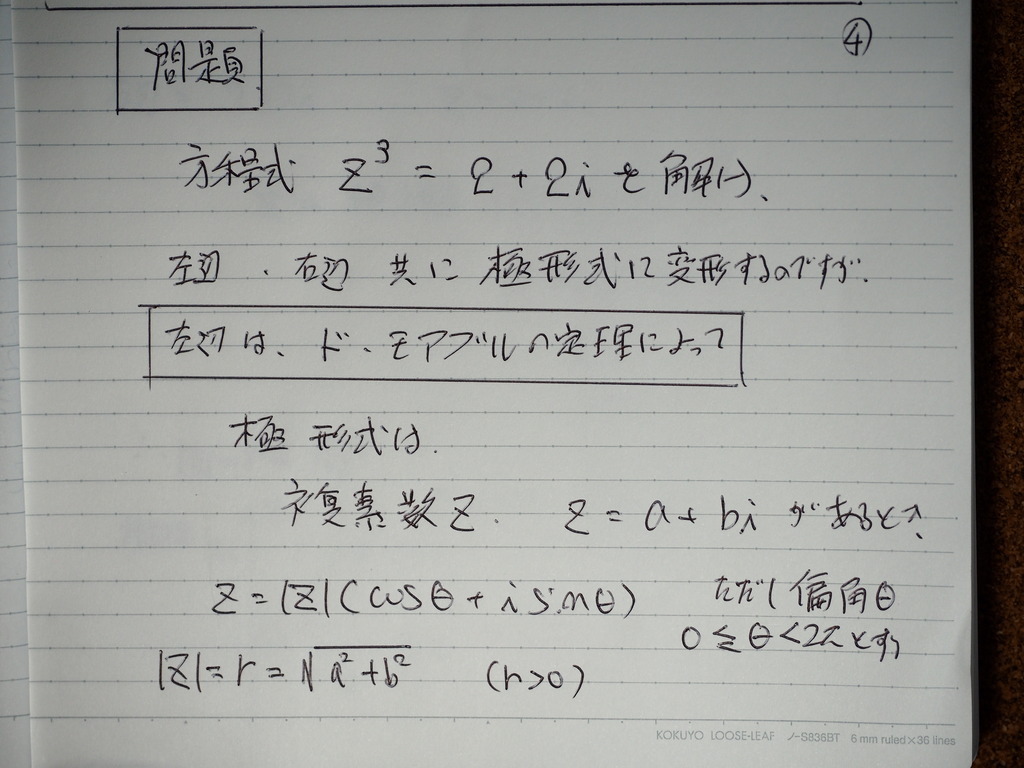 ④
問題
方程式 z³ = 2 + 2i を解け、
左辺 . 右辺 共に 極形式に変形するのですが.
左辺は、ド・モアブルの定理によって
極形式は.
複素数z. z = a + bi があるとき、
z = |z| (cosθ + i sinθ) ただし 偏角θ
0 ≦ θ < 2π とする
|z| = r = √a²+b² (r>0)
KOKUYO LOOSE-LEAF ノ-S836BT 6 mm ruled×36 lines